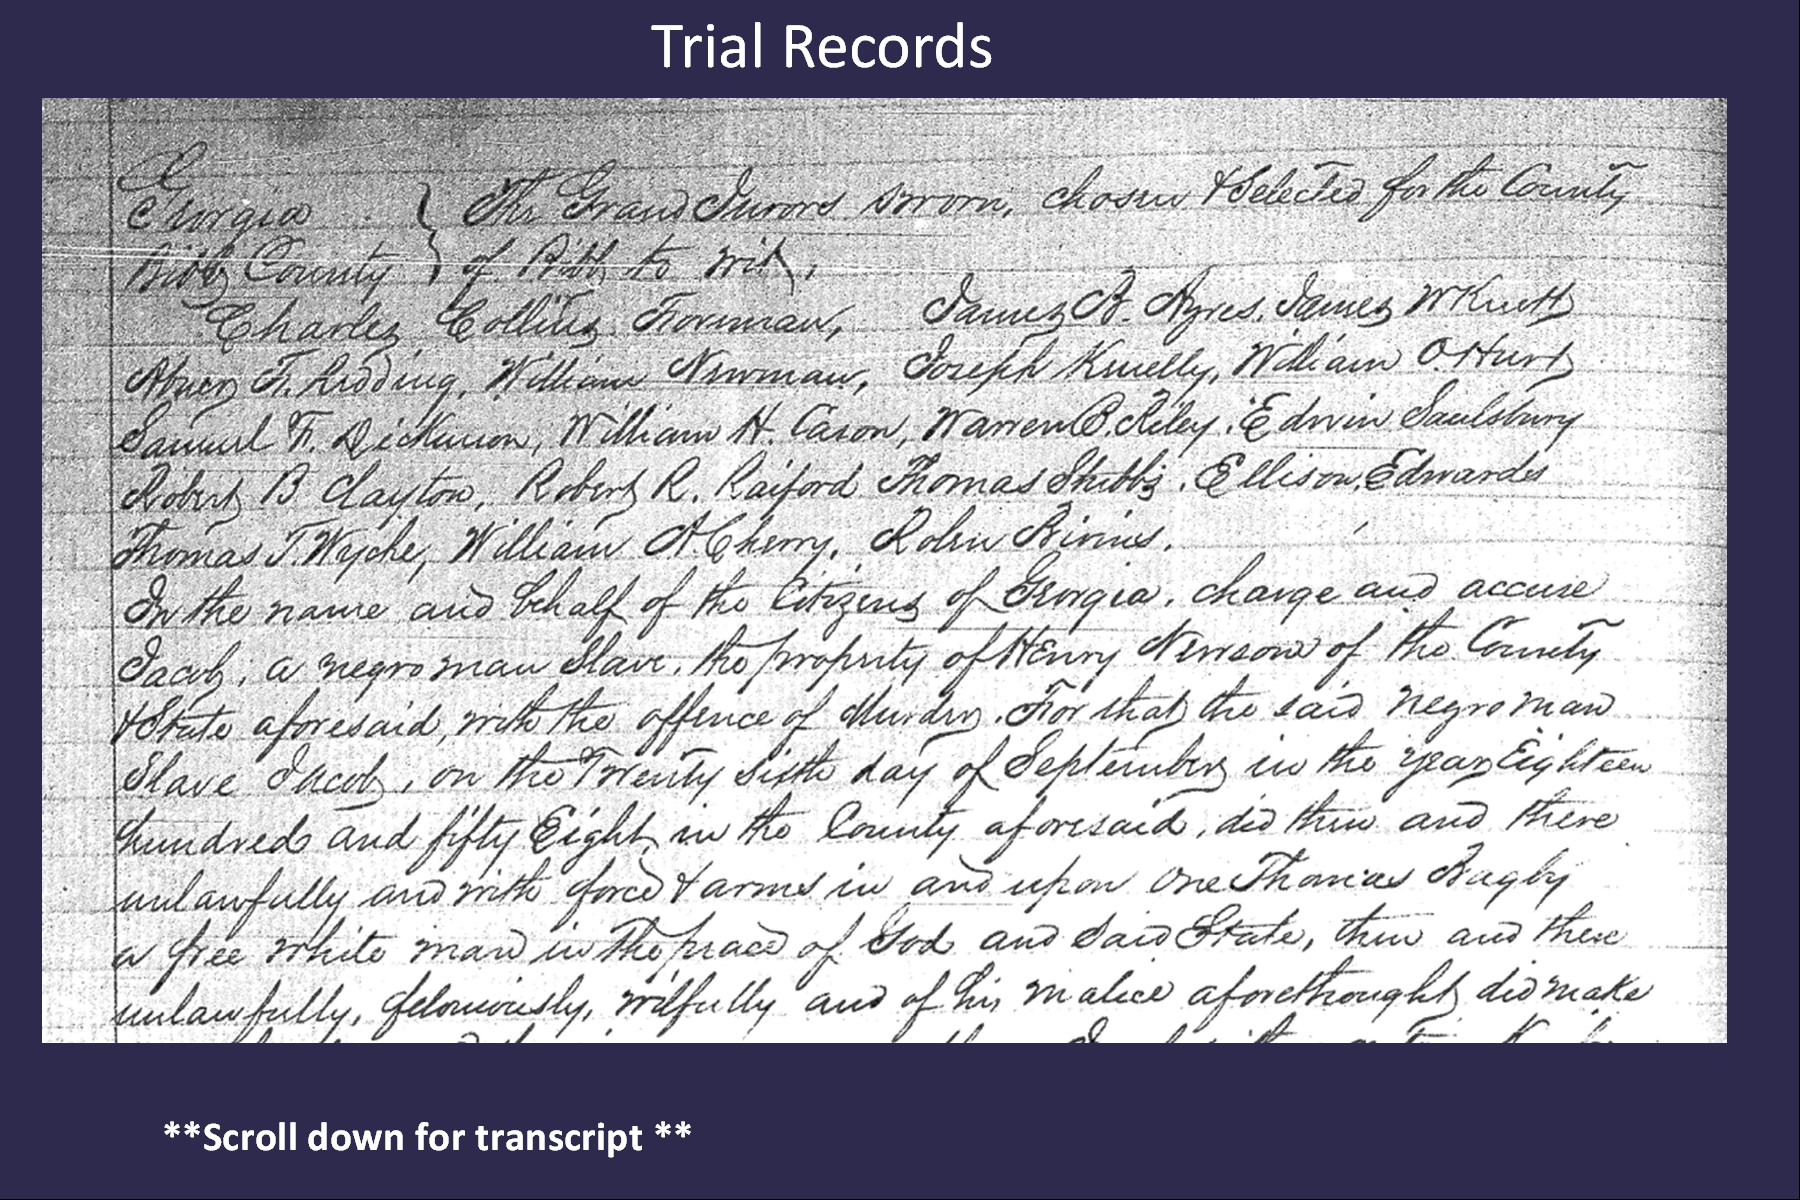 Trial Records
Georgia } The Grand Jurors sworn, chosen & Selected for the County
Bibb County } of Bibb to wit,
Charles Collins Forman, James A. Ayres, James W Knott
Abner F. Redding, William Newman, Joseph Knelly, William O. Hurt
Samuel F. Dickinson, William H. Cason, Warren B. Riley, Edwin Saulsbury
Robert B Clayton, Robert R. Raiford Thomas Stubbs, Ellison, Edwards
Thomas T. Wyche, William A Cherry, Bivins.
In the name and behalf of the Citizens of Georgia, charge and accuse
Jacob, a negro man Slave, the property of Henry Newsom of the County
& State aforesaid, with the offence of Murder. For that the said negro man
Slave Jacob, on the Twenty sixth day of September in the year Eighteen
hundred and fifty Eight, in the County aforesaid, did then and there
unlawfully and with force & arms in and upon one Thomas Bagby
a free white man in the peace of God and said State, then and there
unlawfully, feloniously, wilfully and of his malice aforethought did make
**Scroll down for transcript **